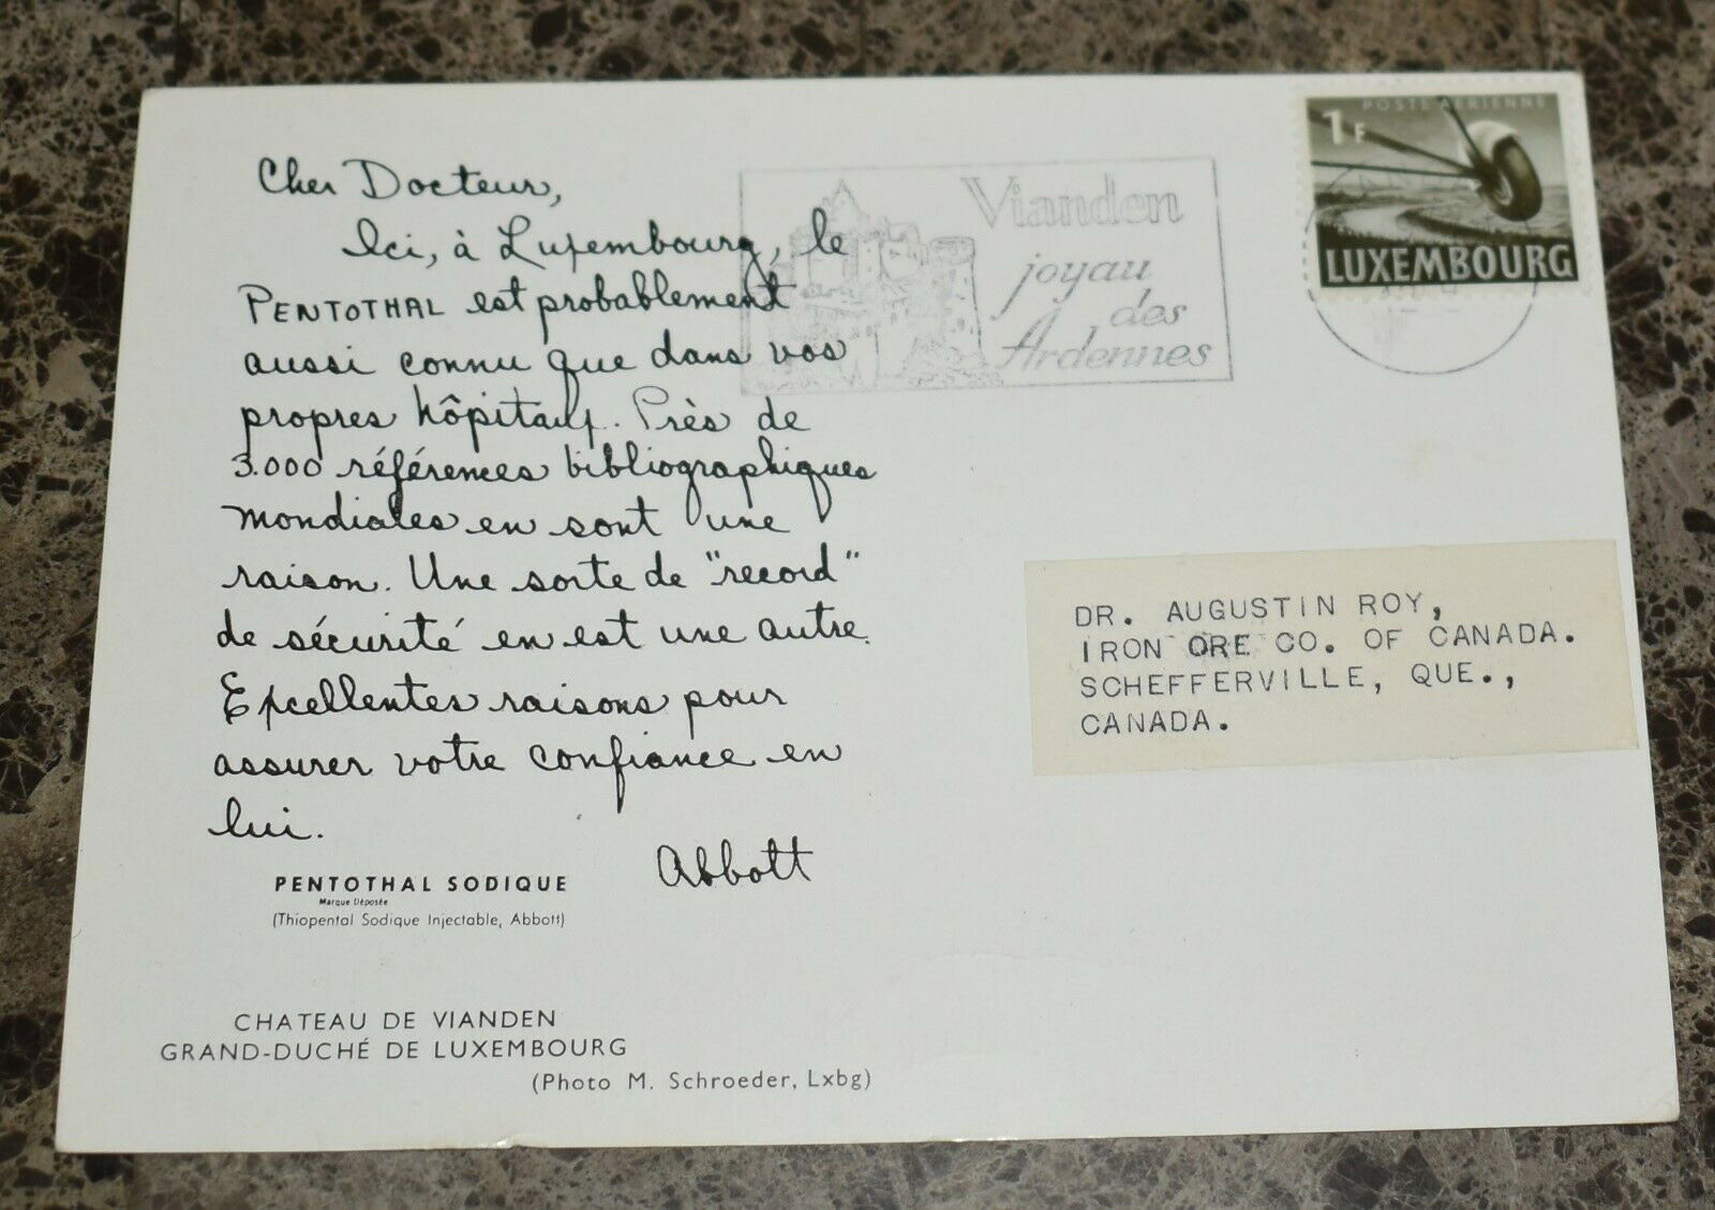 Cher Docteur,
Ici, à Luxembourg, le
PENTOTHAL est probablement
aussi connu que dans vos
propres hôpitaux. Près de
3.000 références bibliographiques
mondiales en sont une
raison. Une sorte de "record"
de sécurité en est une autre.
Excellentes raisons pour
assurer votre confiance en
lui.
Abbott
PENTOTHAL SODIQUE
Marque Déposée
(Thiopental Sodique Injectable, Abbott)
CHATEAU DE VIANDEN
GRAND-DUCHÉ DE LUXEMBOURG
(Photo M. Schroeder, Lxbg)
Vianden
joyau
des
Ardennes
POSTE AÉRIENNE
1F
LUXEMBOURG
DR. AUGUSTIN ROY,
IRON ORE CO. OF CANADA.
SCHEFFERVILLE, QUE.,
CANADA.